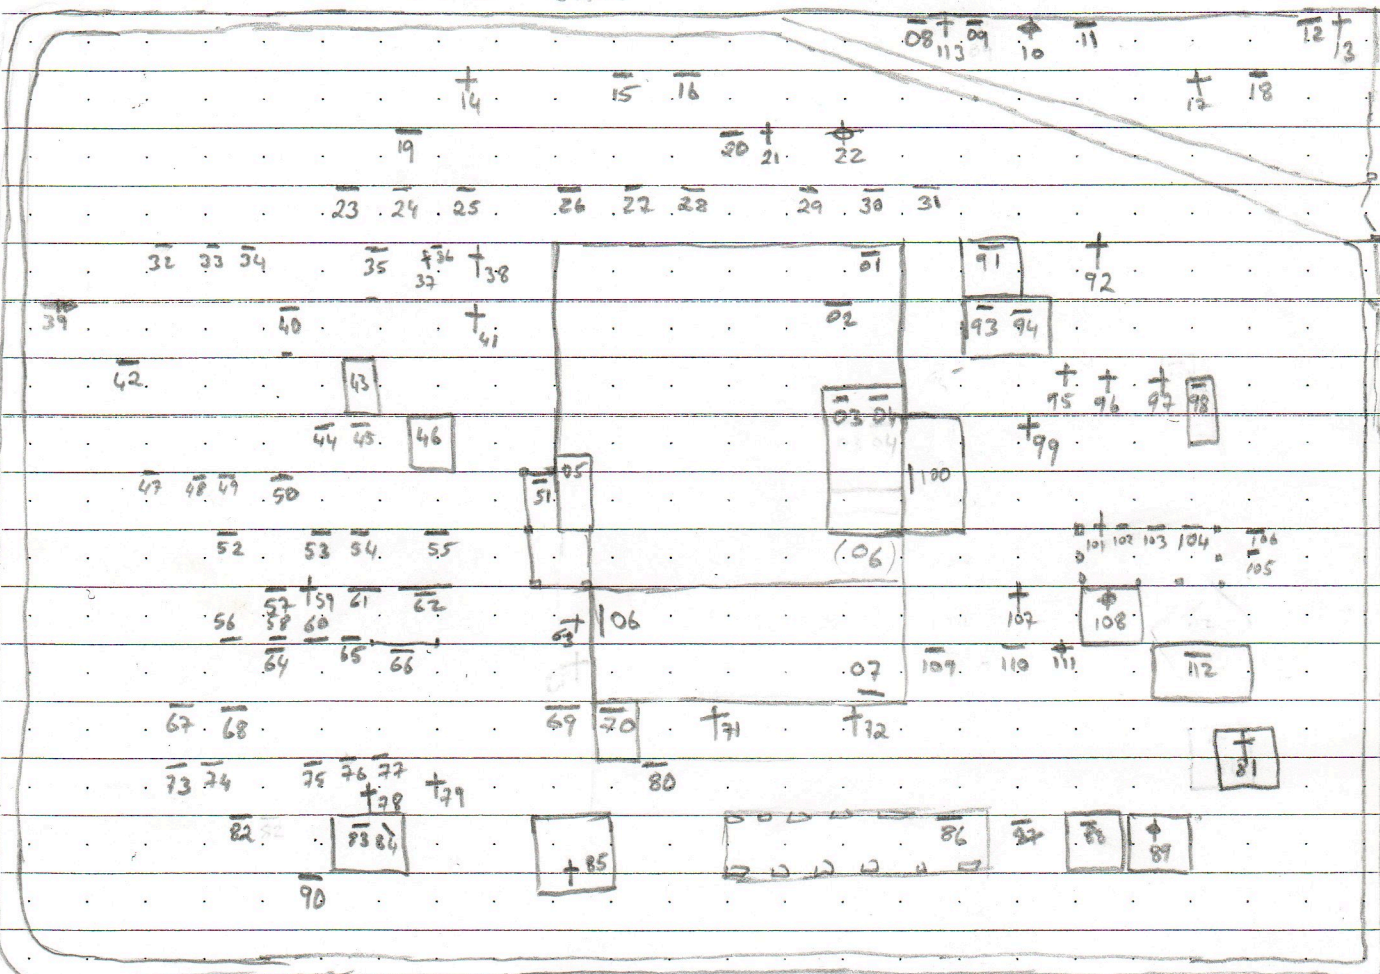 08 113 09 10 11 12 13
14 15 16 17 18
19 20 21 22
23 24 25 26 27 28 29 30 31
32 33 34 35 36 37 38 01 91 92
39 40 41 02 93 94
42 43 03 04 95 96 97 98
44 45 46 99
47 48 49 50 51 05 100
52 53 54 55 (06) 101 102 103 104 106 105
57 59 61 62
56 58 60 63 06 107 108
64 65 66 07 109 110 111 112
67 68 69 70 71 72
73 74 75 76 77 78 79 80 81
82 83 84 85 86 87 88 89
90